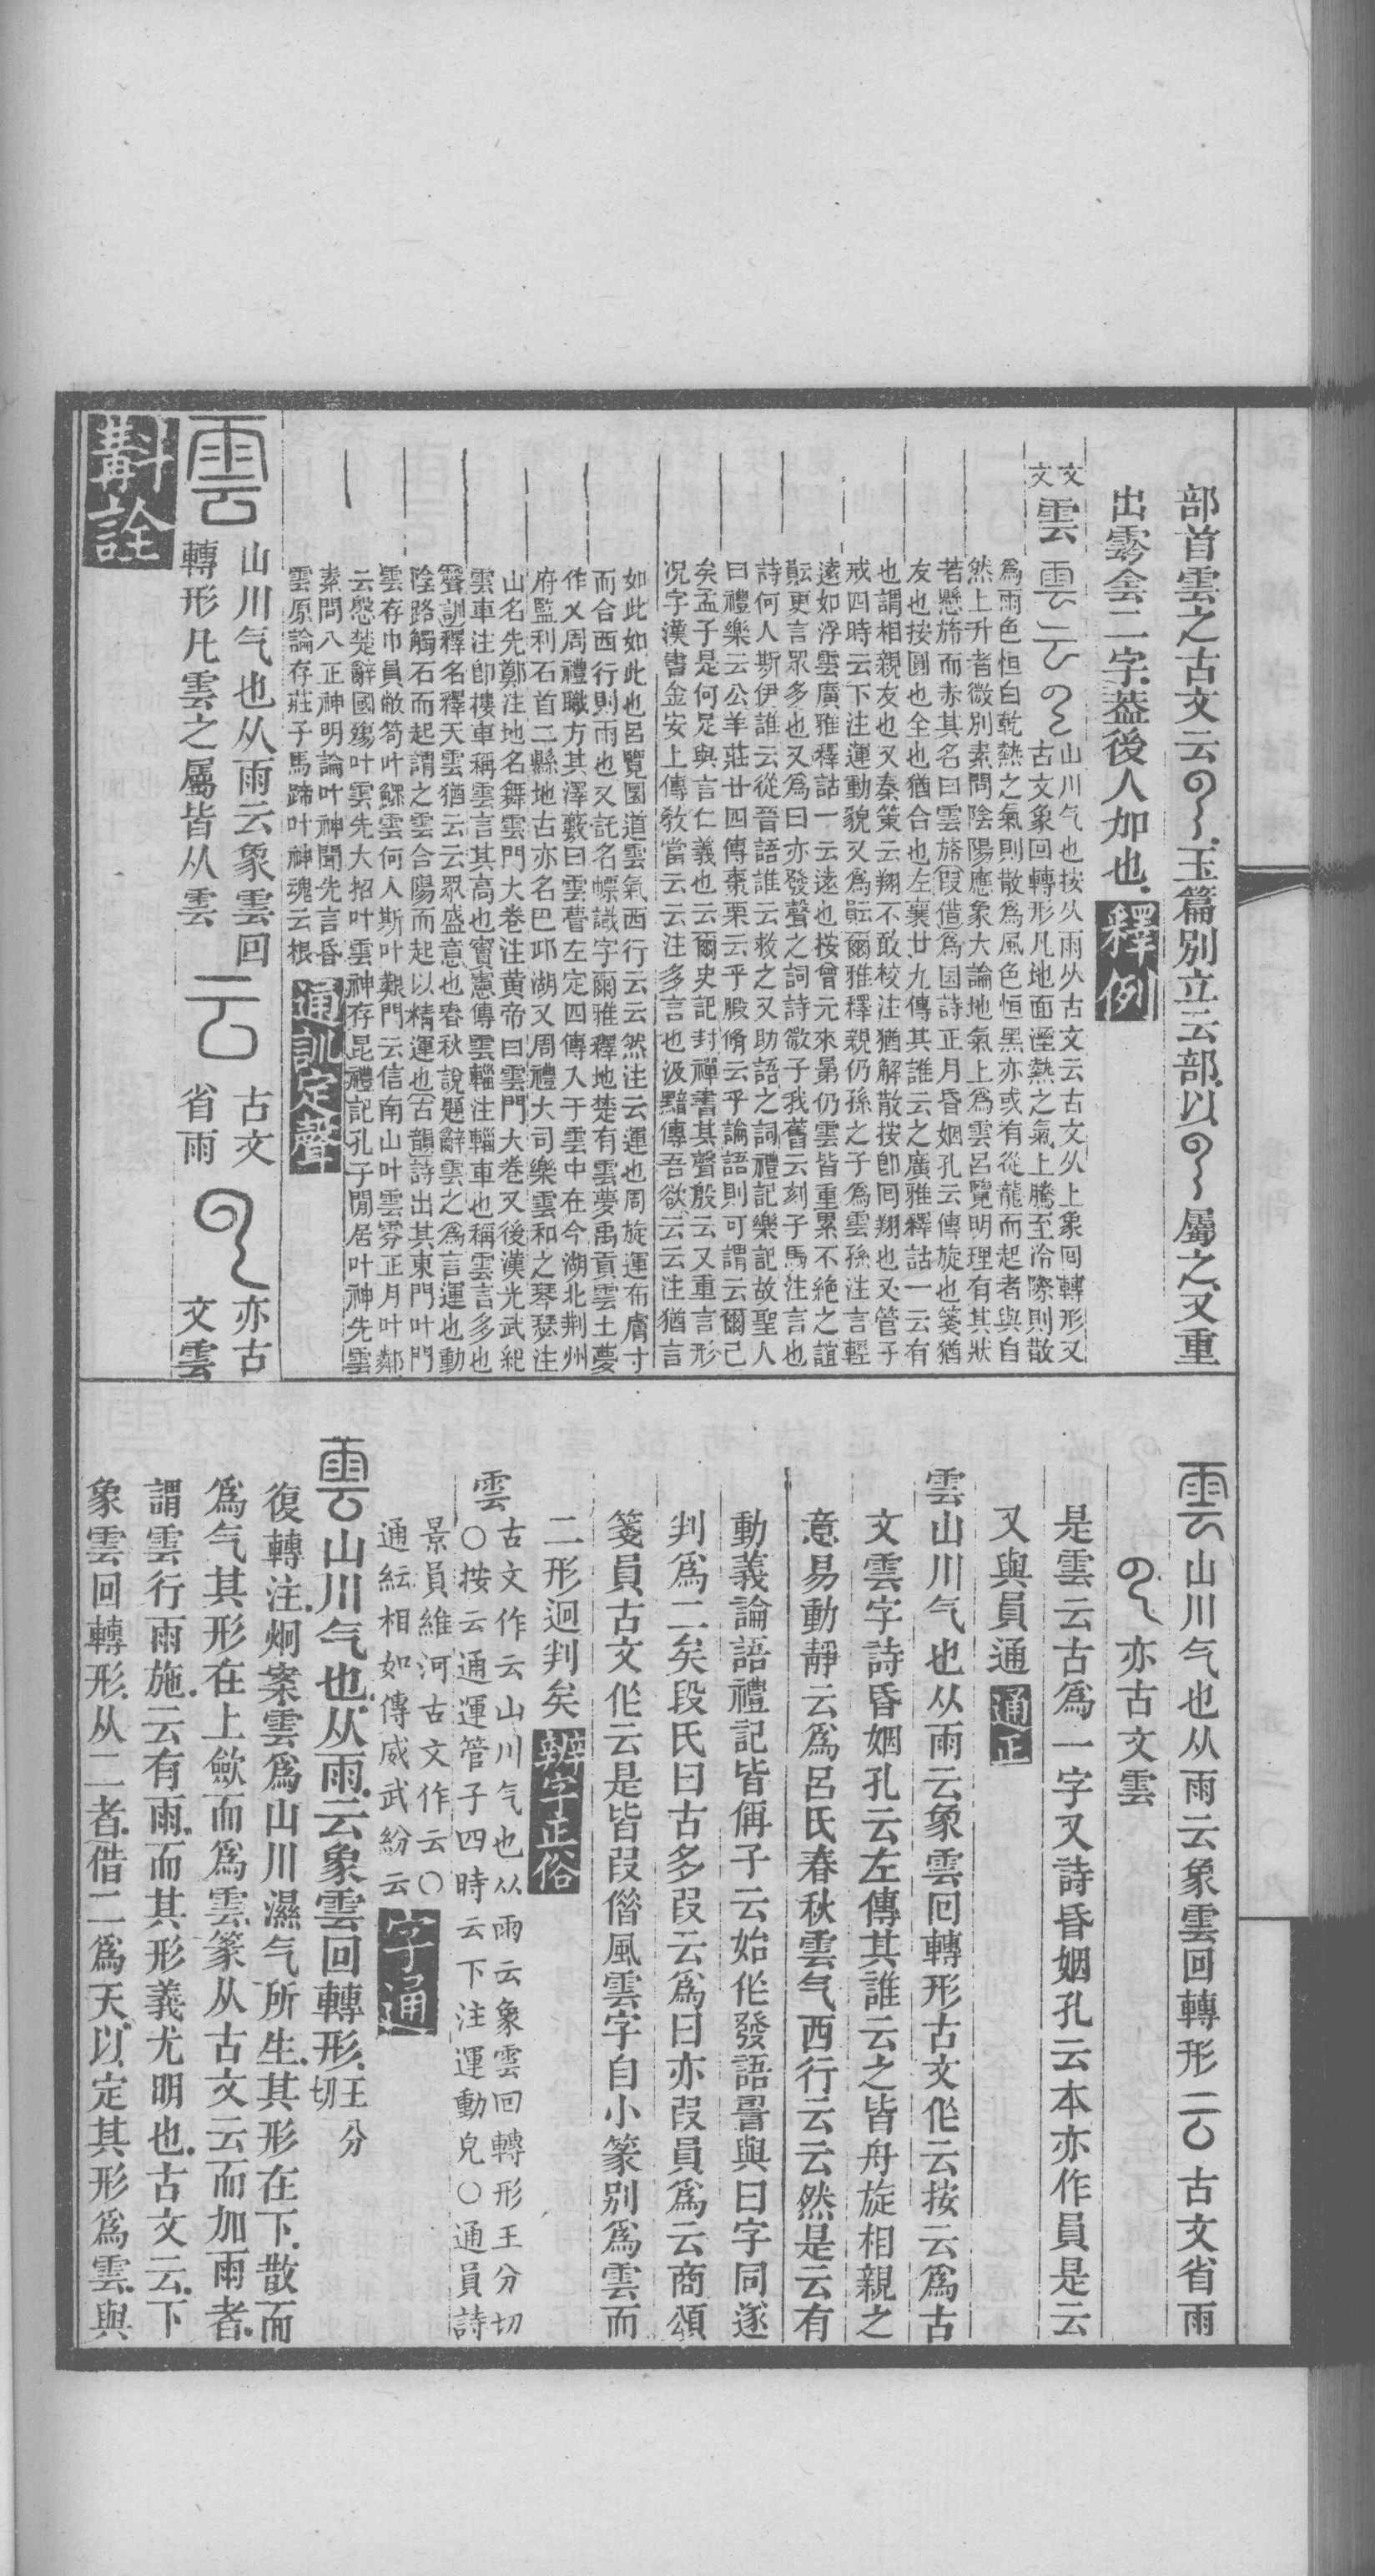 部首雲之古文云玉篇別立云部以屬之又重
出雺㑹二字葢後人加也 釋例
文文
雲
山川气也按从雨从古文云古文从上象囘轉形又
古文象回轉形凡地面溼熱之氣上騰至冷際則散
爲雨色恒白乾熱之氣則散爲風色恒黑亦或有從龍而起者與自
然上升者微別素問陰陽應象大論地氣上爲雲呂覽明理有其狀
若懸旍而赤其名曰雲旍叚借爲囩詩正月昏姻孔云傳旋也箋猶
友也按圓也仝也猶合也左襄廿九傳其誰云之廣雅釋詁一云有
也謂相親友也又秦策云翔不敢校注猶解散按卽囘翔也又管子
戒四時云下注運動貌又爲䢵爾雅釋親仍孫之子爲雲孫注言輕
遠如浮雲廣雅釋詁一云遠也按曾元來晜仍雲皆重累不絶之誼
䢵更言眾多也又爲曰亦發聲之詞詩微子我舊云刻子馬注言也
詩何人斯伊誰云從晉語誰云救之又助語之詞禮記樂記故聖人
曰禮樂云公羊莊廿四傳棗栗云乎腶脩云乎論語則可謂云爾已
矣孟子是何足與言仁義也云爾史記封禪書其聲殷云又重言形
况字漢書金安上傳敎當云云注多言也汲黯傳吾欲云云注猶言
如此如此也呂覽圜道雲氣西行云云然注云運也周旋運布膚寸
而合西行則雨也又託名幖識字爾雅釋地楚有雲夢禹貢雲土夢
作乂周禮職方其澤藪曰雲瞢左定四傳入于雲中在今湖北荆州
府監利石首二縣地古亦名巴邱湖又周禮大司樂雲和之琴瑟注
山名先鄭注地名舞雲門大卷注黄帝曰雲門大卷又後漢光武紀
雲車注卽樓車稱雲言其高也竇憲傳雲輜注輜車也稱雲言多也
聲訓釋名釋天雲猶云云眾盛意也春秋說題辭雲之爲言運也動
陰路觸石而起謂之雲合陽而起以精運也古韻詩出其東門叶門
雲存巾員敝笱叶鰥雲何人斯叶艱門云信南山叶雲雰正月叶鄰
云慇楚辭國殤叶雲先大招叶雲神存昆禮記孔子閒居叶神先雲
素問八正神明論叶神聞先言昏
雲原論存莊子馬蹄叶神魂云根 通訓定聲
雲 山川气也从雨云象雲回
轉形凡雲之屬皆从雲 云 古文
省雨 亦古
文雲
斠詮
雲山川气也从雨云象雲回轉形 古文省雨
亦古文雲
是雲云古爲一字又詩昏姻孔云本亦作員是云
又與員通 通正
雲山川气也从雨云象雲回轉形古文作云按云爲古
文雲字詩昏姻孔云左傳其誰云之皆舟旋相親之
意易動靜云爲呂氏春秋雲气西行云云然是云有
動義論語禮記皆偁子云始作發語㫳與曰字同遂
判爲二矣段氏曰古多叚云爲曰亦叚員爲云商頌
箋員古文作云是皆叚借風雲字自小篆別爲雲而
二形迥判矣 辨字正俗
雲 古文作云山川气也从雨云象雲回轉形王分切
○按云通運管子四時云下注運動皃○通員詩
景員維河古文作云○
通紜相如傳威武紛云 字通
雲山川气也从雨云象雲回轉形王分切
復轉注烱案雲爲山川濕气所生其形在下散而
爲气其形在上斂而爲雲篆从古文云而加雨者
謂雲行雨施云有雨而其形義尤明也古文云下
象雲回轉形从二者借二爲天以定其形爲雲與